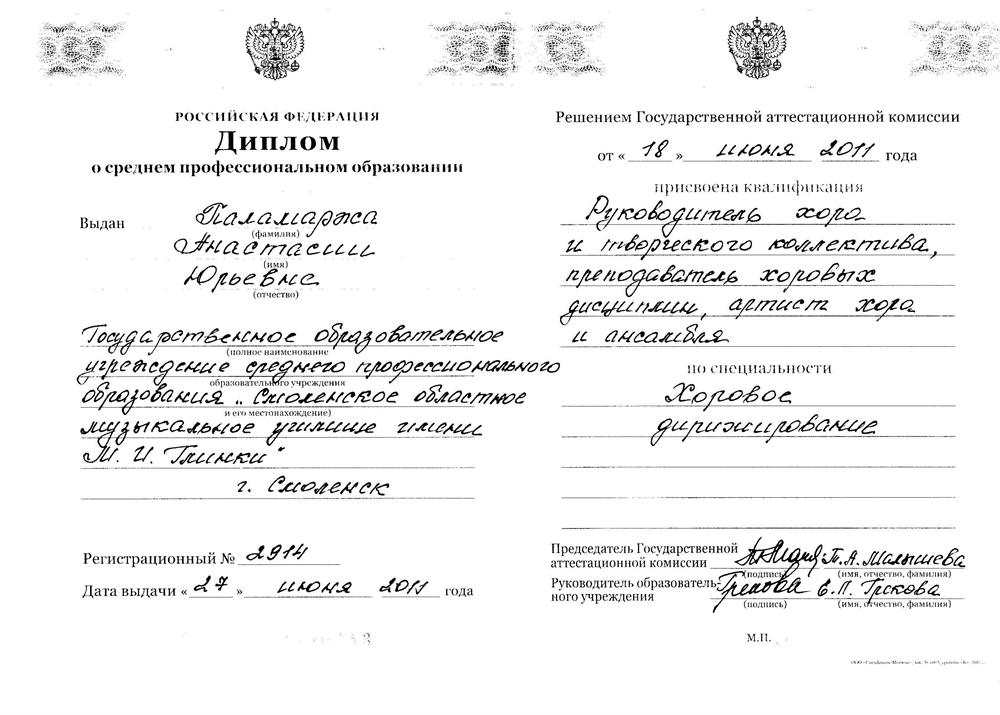 РОССИЙСКАЯ ФЕДЕРАЦИЯ
Диплом
о среднем профессиональном образовании
Выдан Паламаржа
(фамилия)
Анастасии
(имя)
Юрьевне
(отчество)
Государственное образовательное
(полное наименование
учреждение среднего профессионального
образовательного учреждения
образования „Смоленское областное
и его местонахождение)
музыкальное училище имени
М. И. Глинки“
г. Смоленск
Регистрационный № 2914
Дата выдачи « 27 » июня 2011 года
Решением Государственной аттестационной комиссии
от « 18 » июня 2011 года
присвоена квалификация
Руководитель хора
и творческого коллектива,
преподаватель хоровых
дисциплин, артист хора
и ансамбля
по специальности
Хоровое
дирижирование
Председатель Государственной
аттестационной комиссии П. А. Малышева
(подпись) (имя, отчество, фамилия)
Руководитель образователь-
ного учреждения Грекова Е. П. Грекова
(подпись) (имя, отчество, фамилия)
М.П.